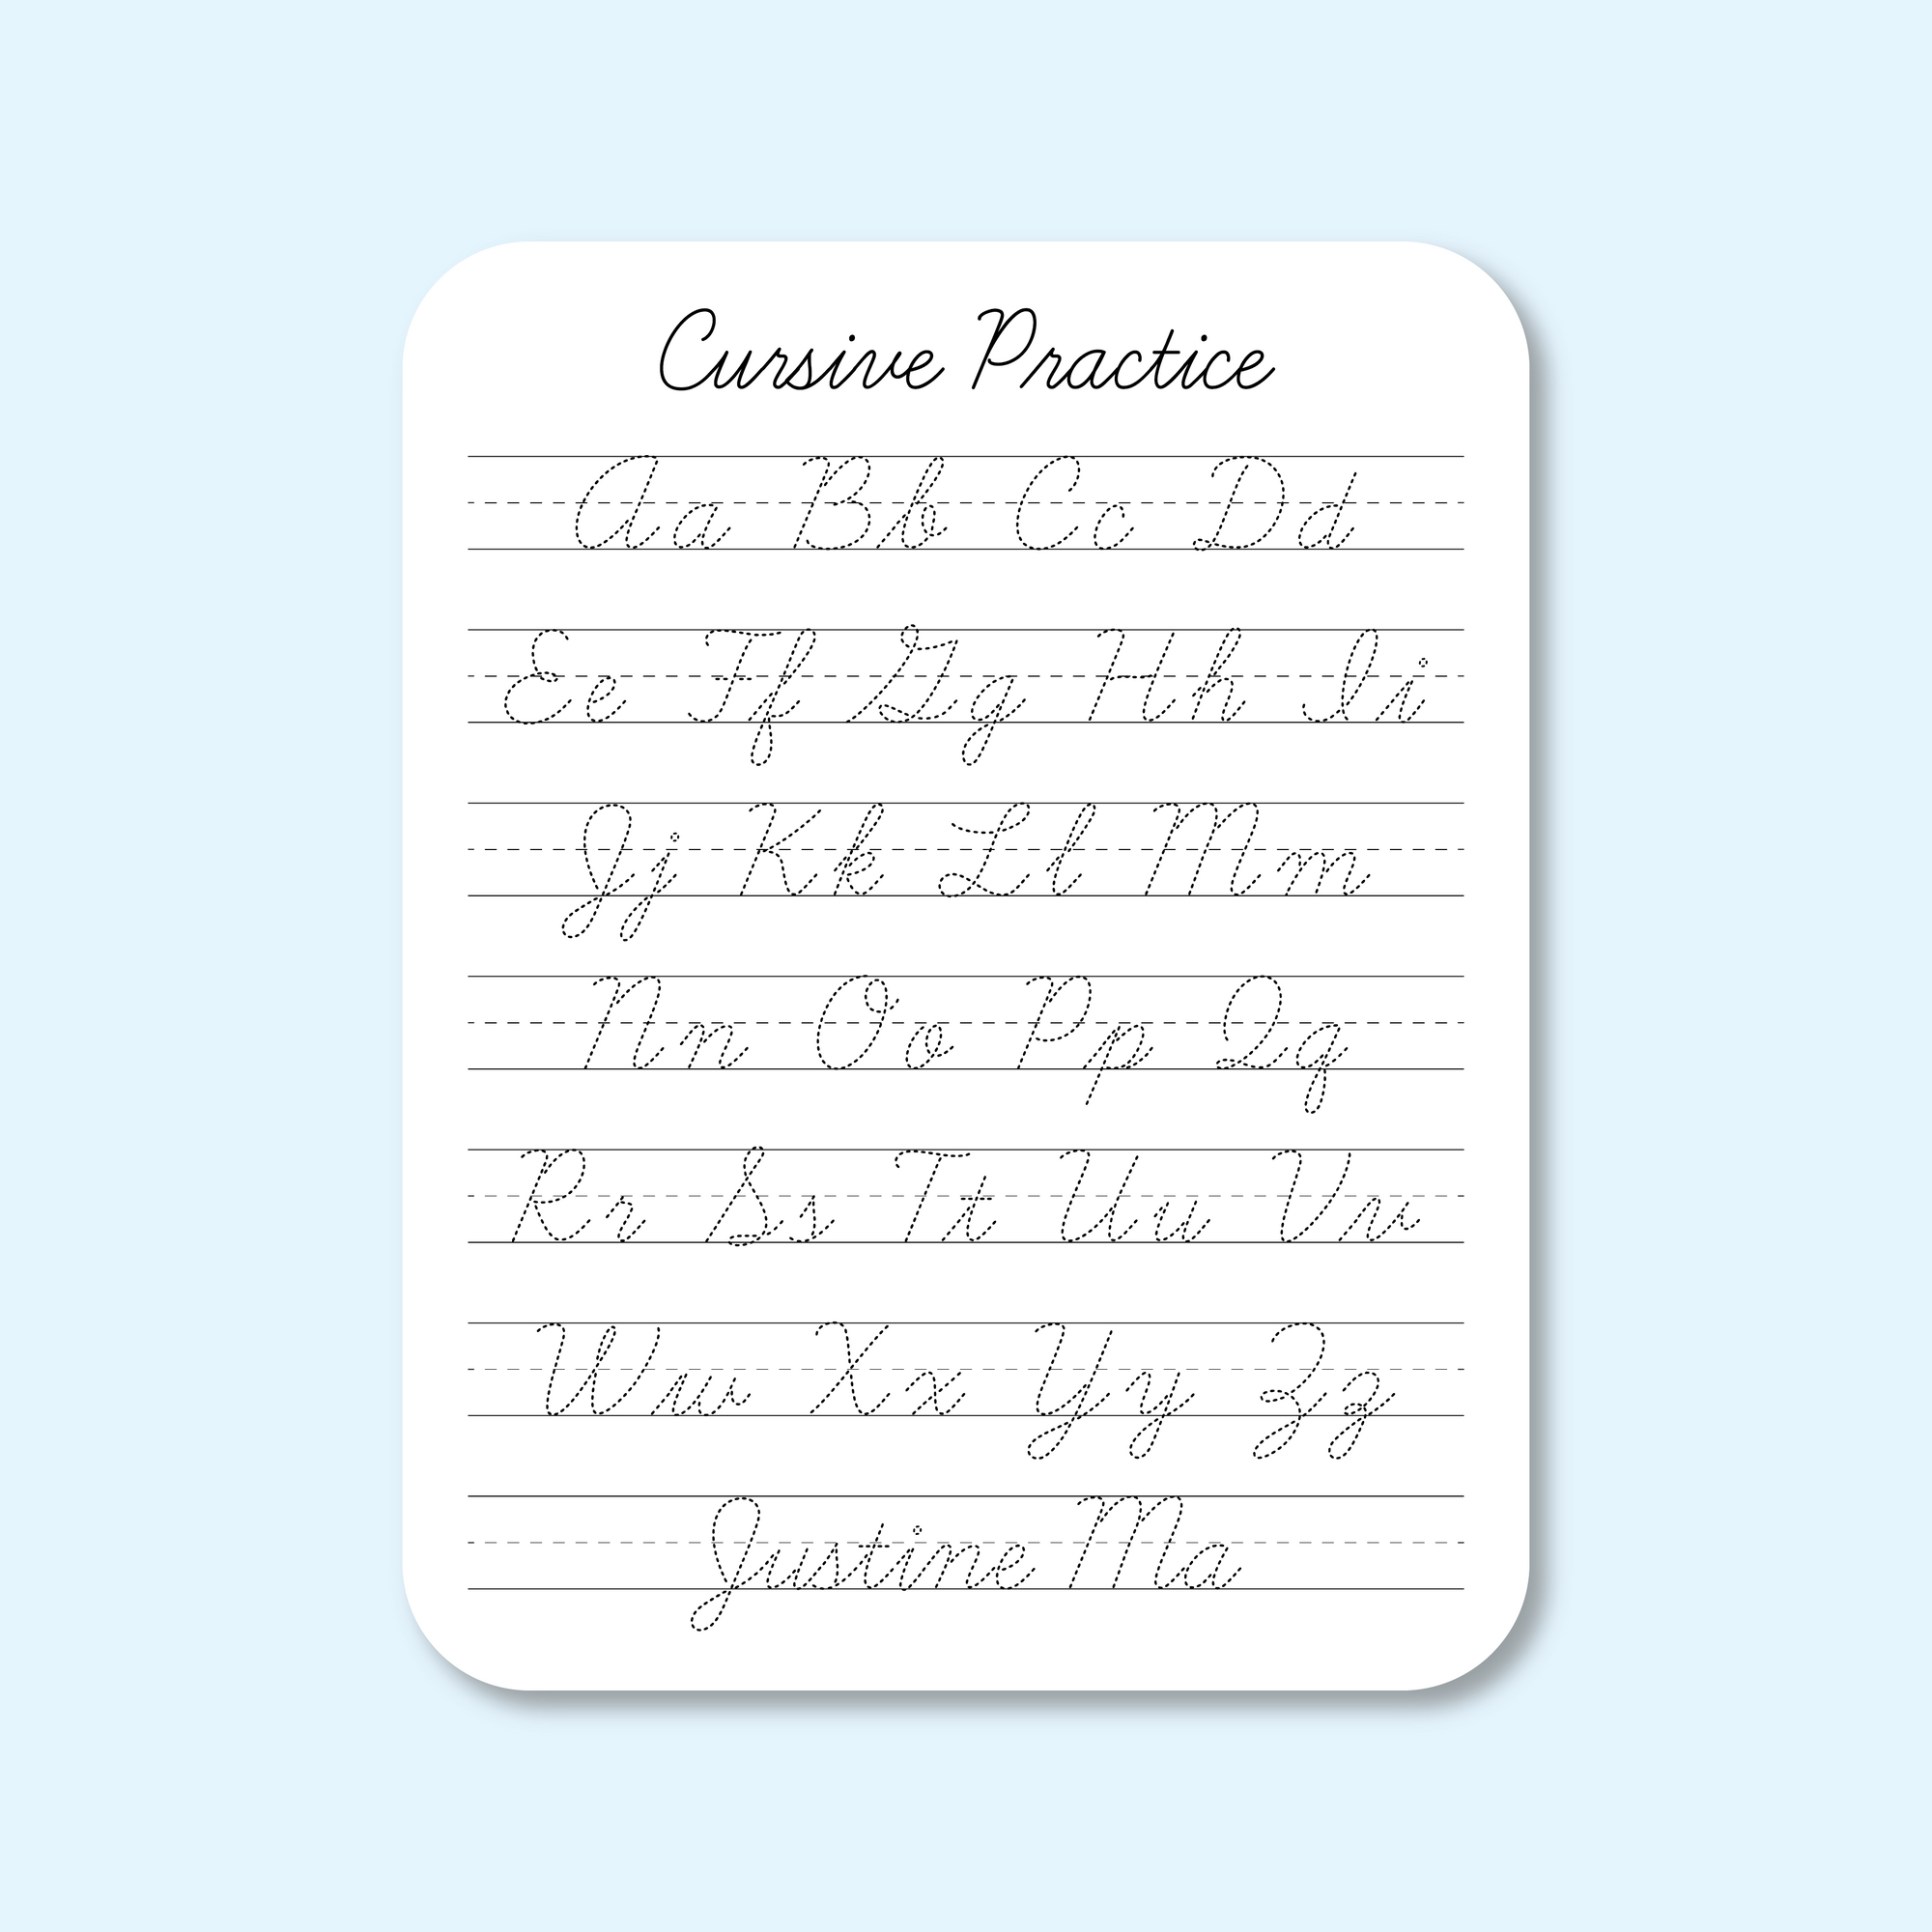 Cursive Practice
Aa Bb Cc Dd
Ee Ff Gg Hh Ii
Jj Kk Ll Mm
Nn Oo Pp Qq
Rr Ss Tt Uu Vv
Ww Xx Yy Zz
Justine Ma